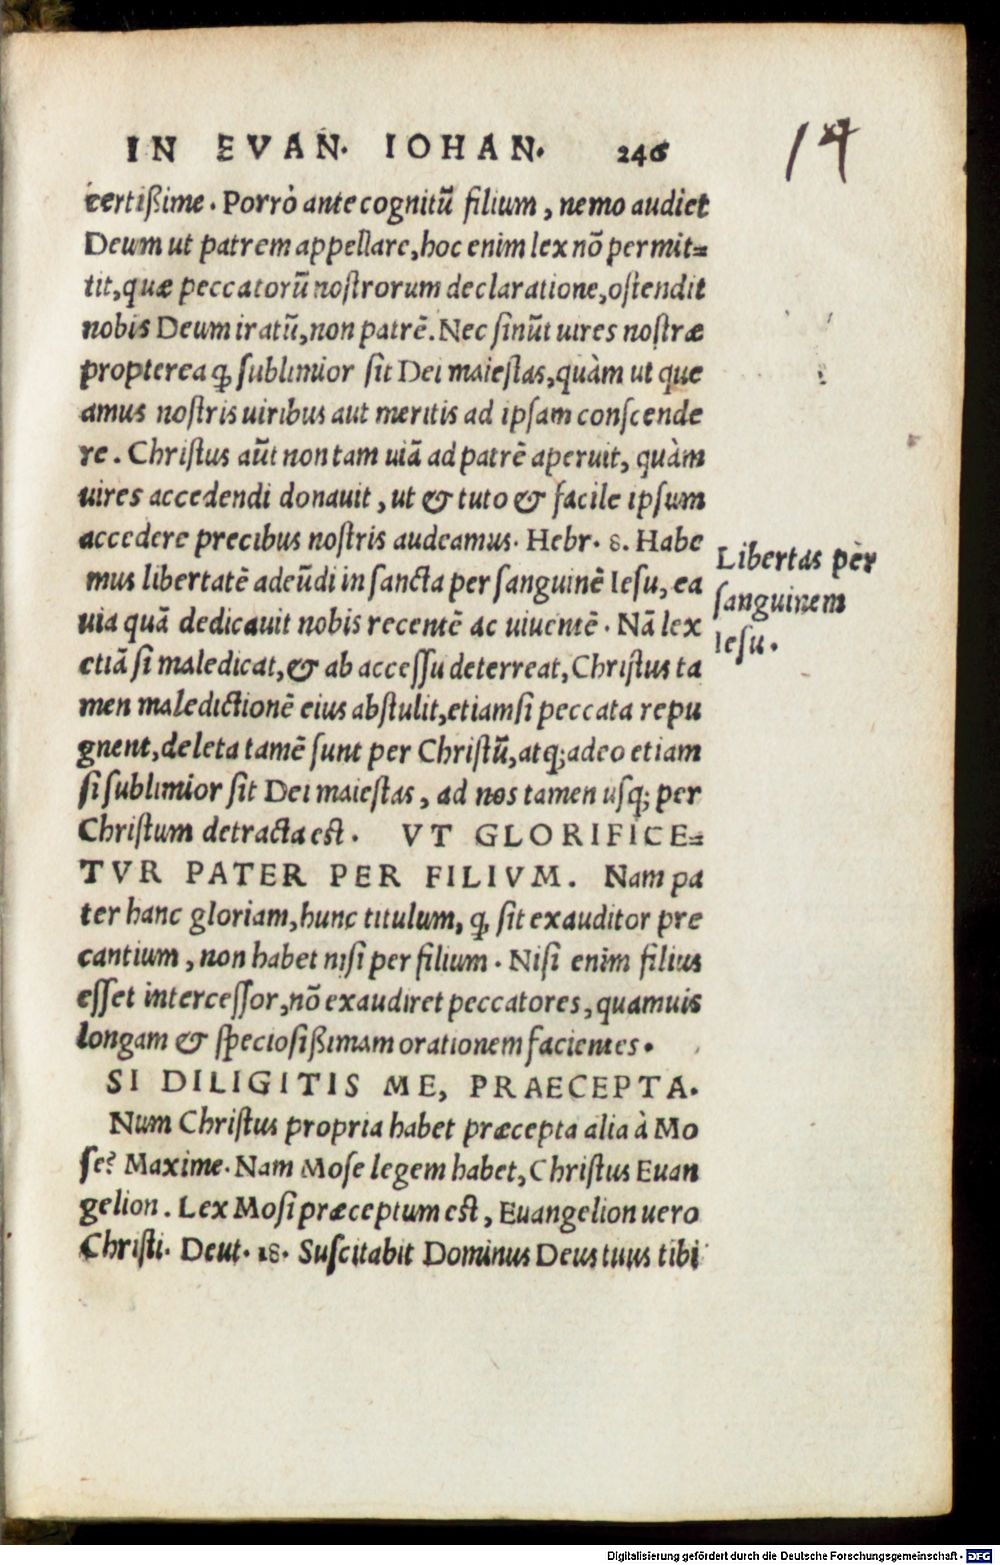 IN EVAN. IOHAN. 246
14
certißime. Porrò ante cognitũ filium, nemo audiet
Deum ut patrem appellare, hoc enim lex nõ permit=
tit, quæ peccatorũ nostrorum declaratione, ostendit
nobis Deum iratũ, non patrẽ. Nec sinũt uires nostræ
propterea ꝙ sublimior sit Dei maiestas, quàm ut que
amus nostris uiribus aut meritis ad ipsam conscende
re. Christus aũt non tam uiã ad patrẽ aperuit, quàm
uires accedendi donauit, ut & tuto & facile ipsum
accedere precibus nostris audeamus. Hebr. 8. Habe
mus libertatẽ adeũdi in sancta per sanguinẽ Iesu, ea
uia quã dedicauit nobis recentẽ ac uiuentẽ. Nã lex
etiã si maledicat, & ab accessu deterreat, Christus ta
men maledictionẽ eius abstulit, etiamsi peccata repu
gnent, deleta tamẽ sunt per Christũ, atq; adeo etiam
si sublimior sit Dei maiestas, ad nos tamen usq; per
Christum detracta est. VT GLORIFICE=
TVR PATER PER FILIVM. Nam pa
ter hanc gloriam, hunc titulum, ꝙ sit exauditor pre
cantium, non habet nisi per filium. Nisi enim filius
esset intercessor, nõ exaudiret peccatores, quamuis
longam & speciosißimam orationem facientes.
SI DILIGITIS ME, PRAECEPTA.
Num Christus propria habet præcepta alia à Mo
se? Maxime. Nam Mose legem habet, Christus Euan
gelion. Lex Mosi præceptum est, Euangelion uero
Christi. Deut. 18. Suscitabit Dominus Deus tuus tibi
Libertas per
sanguinem
Iesu.
Digitalisierung gefördert durch die Deutsche Forschungsgemeinschaft - DFG